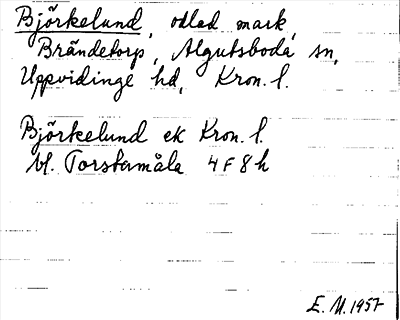 Björkelund, odlad mark,
Brändetorp, Algutsboda sn,
Uppvidinge hd, Kron. l.
Björkelund ek Kron. l.
bl. Torstamåla 4 F 8 h
E. U. 1957